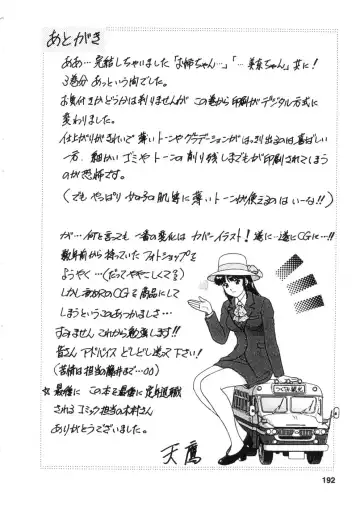 あとがき
ああ…完結しちゃいました「お姉ちゃん…」「…美奈ちゃん」共に!
3巻分あっという間でした。
お気付きかどうかは判りませんが この巻から印刷がデジタル方式に
変わりました。
仕上がりがきれいで薄いトーンやグラデーションがはっきり出るのは喜ばしい
一方、細かいゴミやトーンの削り残しまでもが印刷されてしまう
のが恐怖です。
(でも やっぱり 女の子の肌等に薄いトーンが使えるのは いーな!!)
が…何と言っても 一番の変化は カバーイラスト! 遂に…遂にCGに…!!
数年前から持っていたフォトショップを
ようやく…(だってややこしくてさ)
しかし 初のCGを商品にして
しまうというこのあつかましさ…
すみません これから勉強します!!
皆さん アドバイス どしどし送って下さい!
(苦情は担当の藤井まで…)
☆最後に この本を最後に定年退職
されるコミック担当の木村さん
ありがとうございました。
天鷹
つくも観光
192